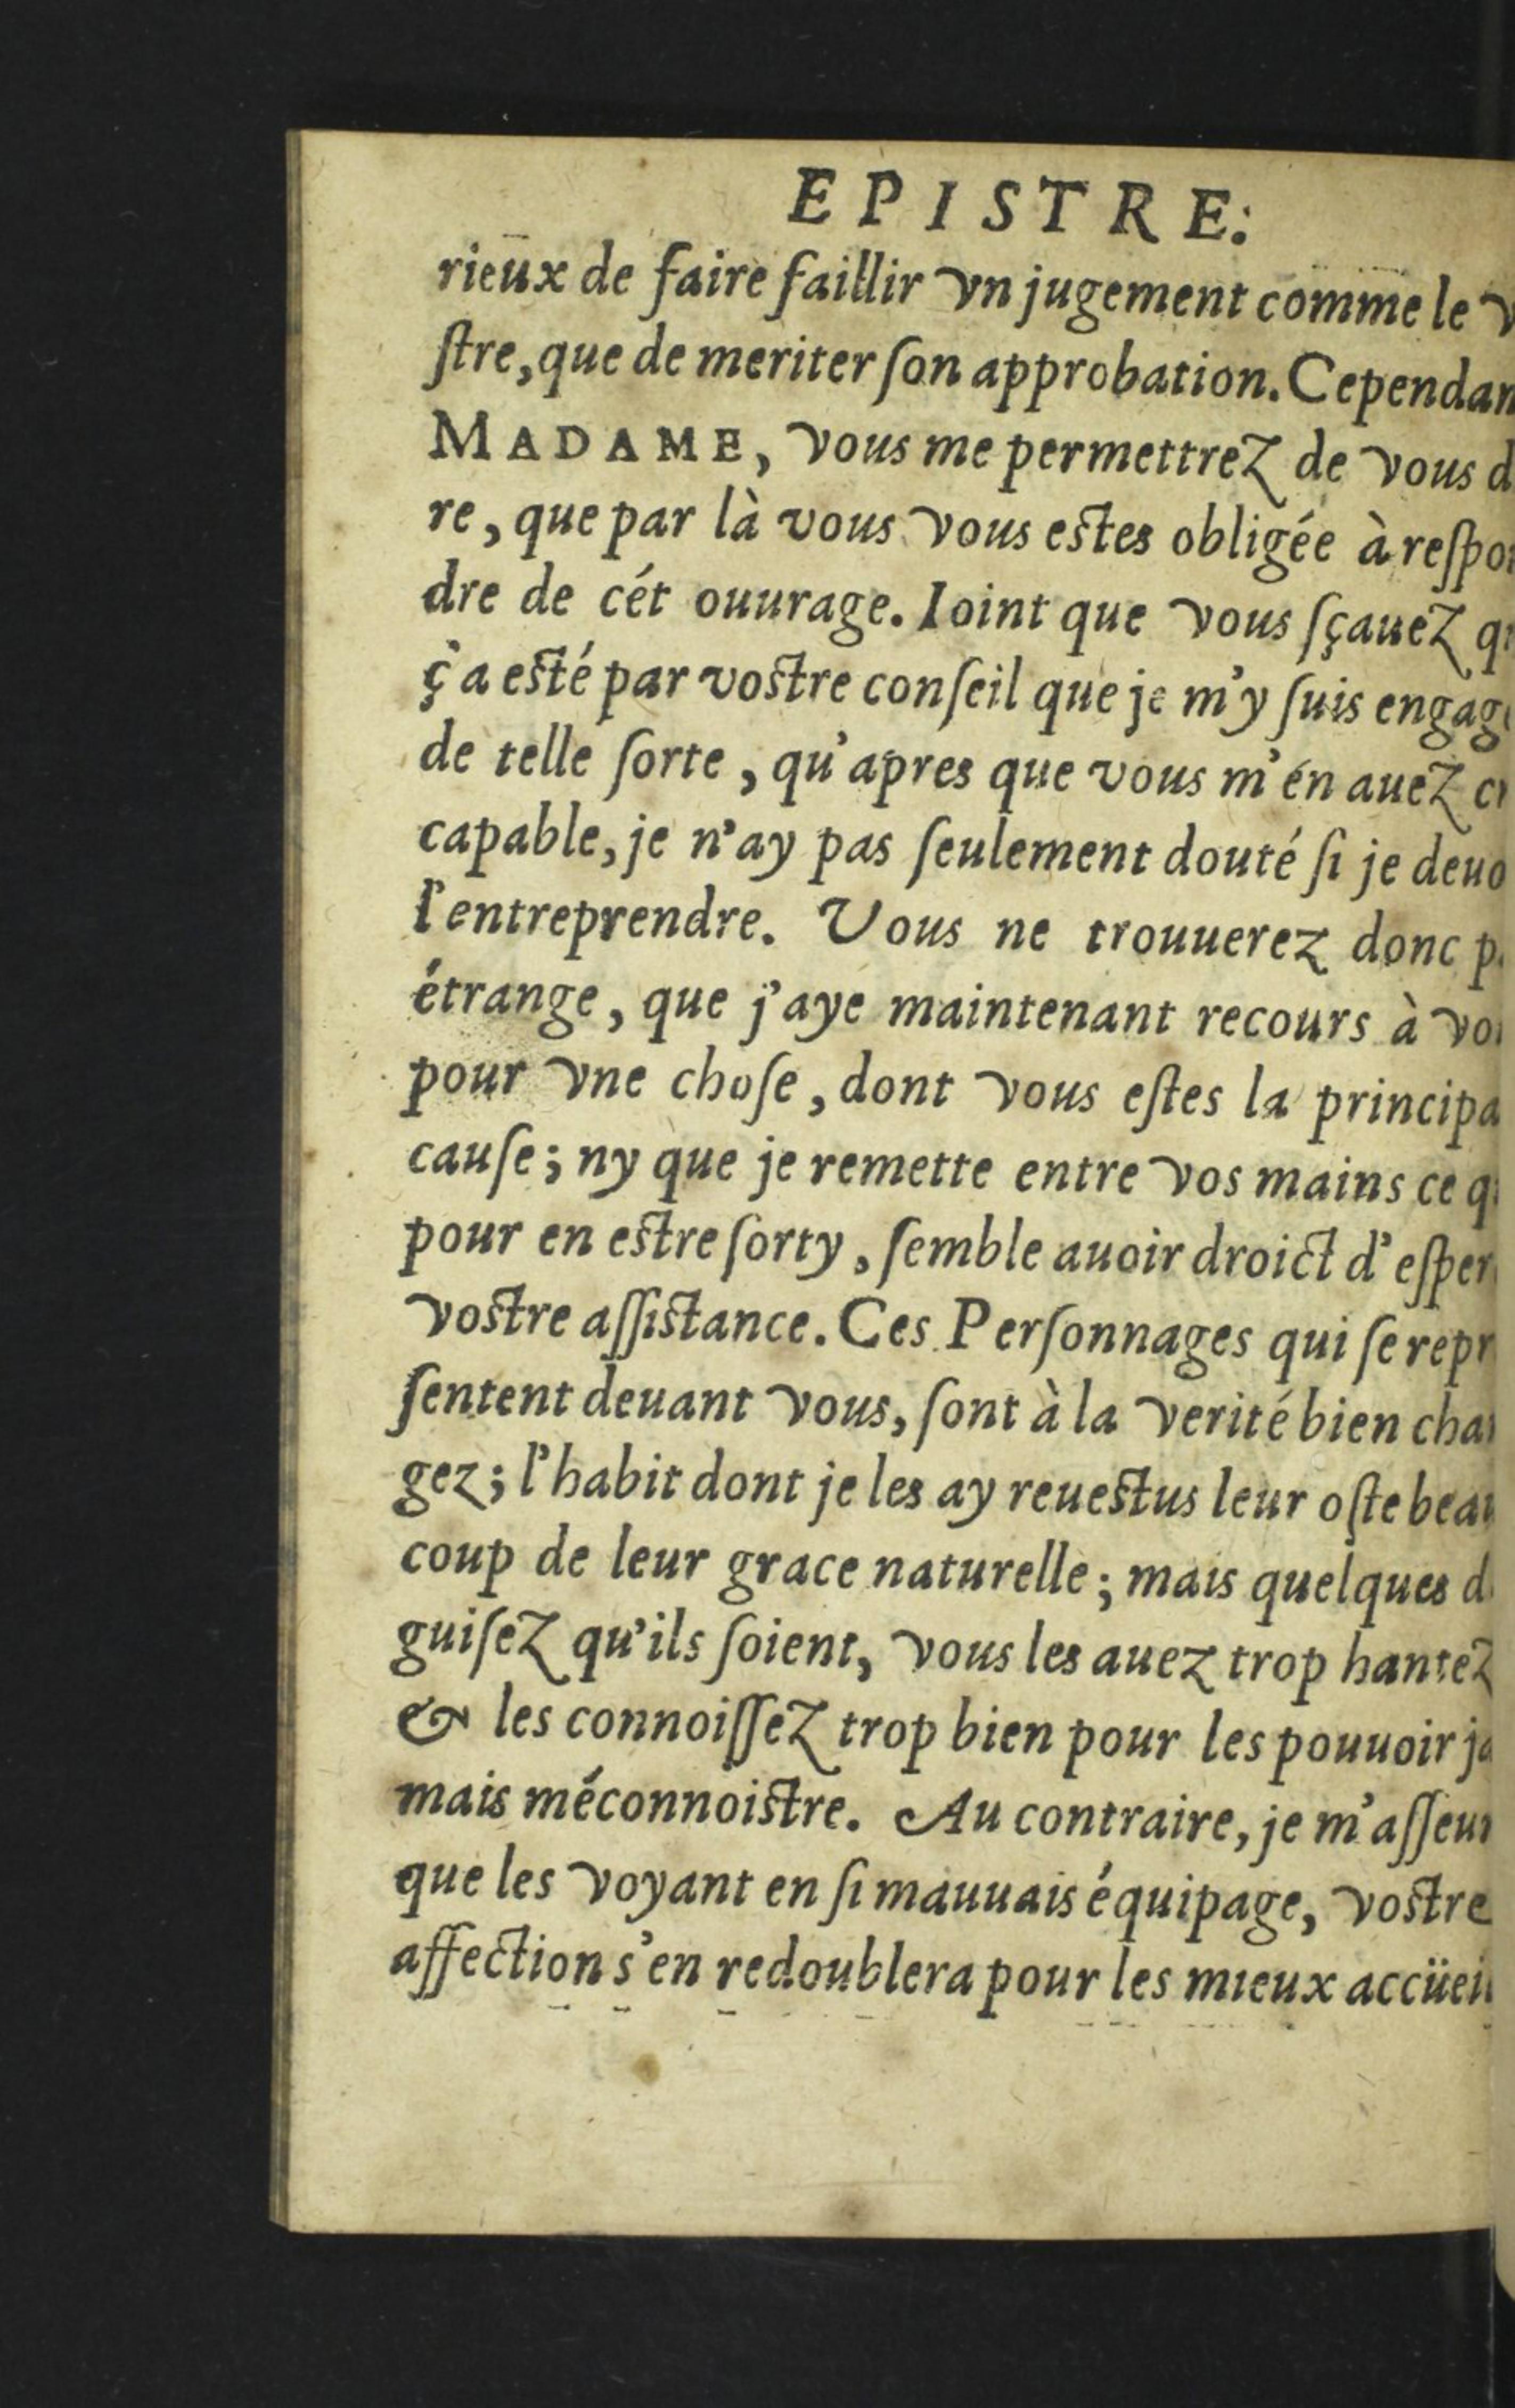 EPISTRE:
rieux de faire faillir vn jugement comme le
ſtre, que de meriter ſon approbation. Cependan
MADAME, vous me permettrez de vous d
re, que par là vous vous eſtes obligée à reſpo
dre de cét ouurage. Ioint que vous ſçauez
ç'a eſté par voſtre conſeil que je m'y ſuis engag
de telle ſorte, qu'apres que vous m'én auez
capable, je n'ay pas ſeulement douté ſi je deuo
l'entreprendre. Vous ne trouuerez donc p
étrange, que j'aye maintenant recours à vo
pour vne choſe, dont vous eſtes la principa
cauſe; ny que je remette entre vos mains ce q
pour en eſtre ſorty, ſemble auoir droict d'eſper
voſtre aſſiſtance. Ces Perſonnages qui ſe repr
ſentent deuant vous, ſont à la verité bien cha
gez; l'habit dont je les ay reueſtus leur oſte beau
coup de leur grace naturelle; mais quelques d
guiſez qu'ils ſoient, vous les auez trop hantez
& les connoiſſez trop bien pour les pouuoir ja
mais méconnoiſtre. Au contraire, je m'aſſeur
que les voyant en ſi mauuais équipage, voſtre
affection s'en redoublera pour les mieux accüeil